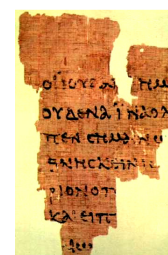 ΟΙ ΪΟΥΔΑΙ ΗΜ
ΟΥΔΕΝΑ ΪΝΑ ΟΛ
ΠΕΝ CΗΜΑΙΝΩ
ΘΝΗCΚΕΙΝ
ΡΙΟΝ ΟΠ
ΚΑΙ ΕΙΠ